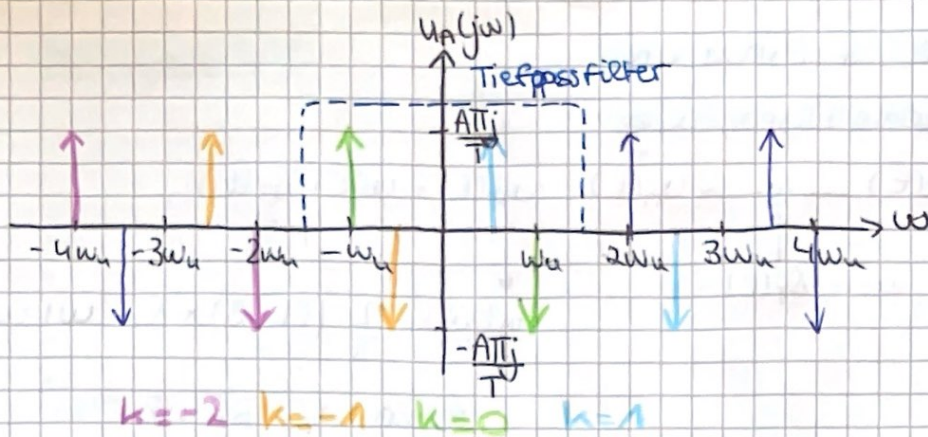 u_A(jω)
Tiefpassfilter
Aπj
T
-4ωu -3ωu -2ωu -ωu ωu 2ωu 3ωu 4ωu ω
-Aπj
T
k=-2 k=-1 k=0 k=1